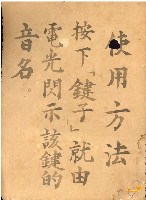 使用方法
按下「鍵子」就由
電光閃示該鍵的
音名。